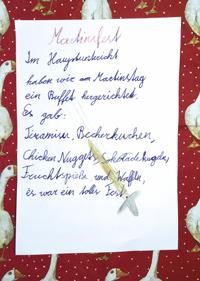 Martinsfest
Im Hauptunterricht
haben wir am Martinstag
ein Buffet hergerichtet.
Es gab:
Tiramisu, Becherkuchen,
Chicken Nuggets, Schokoladekugeln,
Fruchtspieße und Waffeln,
es war ein tolles Fest.